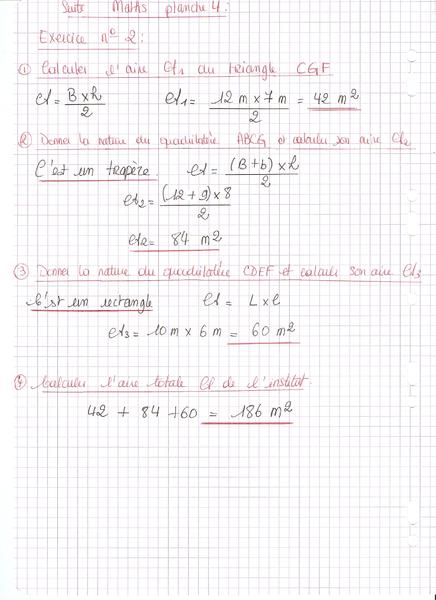 Suite Maths planche 4:
Exercice n° 2:
① Calculer l'aire A1 du triangle CGF
A = B x h / 2 A1 = 12 m x 7 m / 2 = 42 m²
② Donner la nature du quadrilatère ABCG et calculer son aire A2
C'est un trapèze. A = (B + b) x h / 2
A2 = (12 + 9) x 8 / 2
A2 = 84 m²
③ Donner la nature du quadrilatère CDEF et calculer son aire A3
C'est un rectangle A = L x l
A3 = 10 m x 6 m = 60 m²
④ Calculer l'aire totale A de l'institut.
42 + 84 + 60 = 186 m²